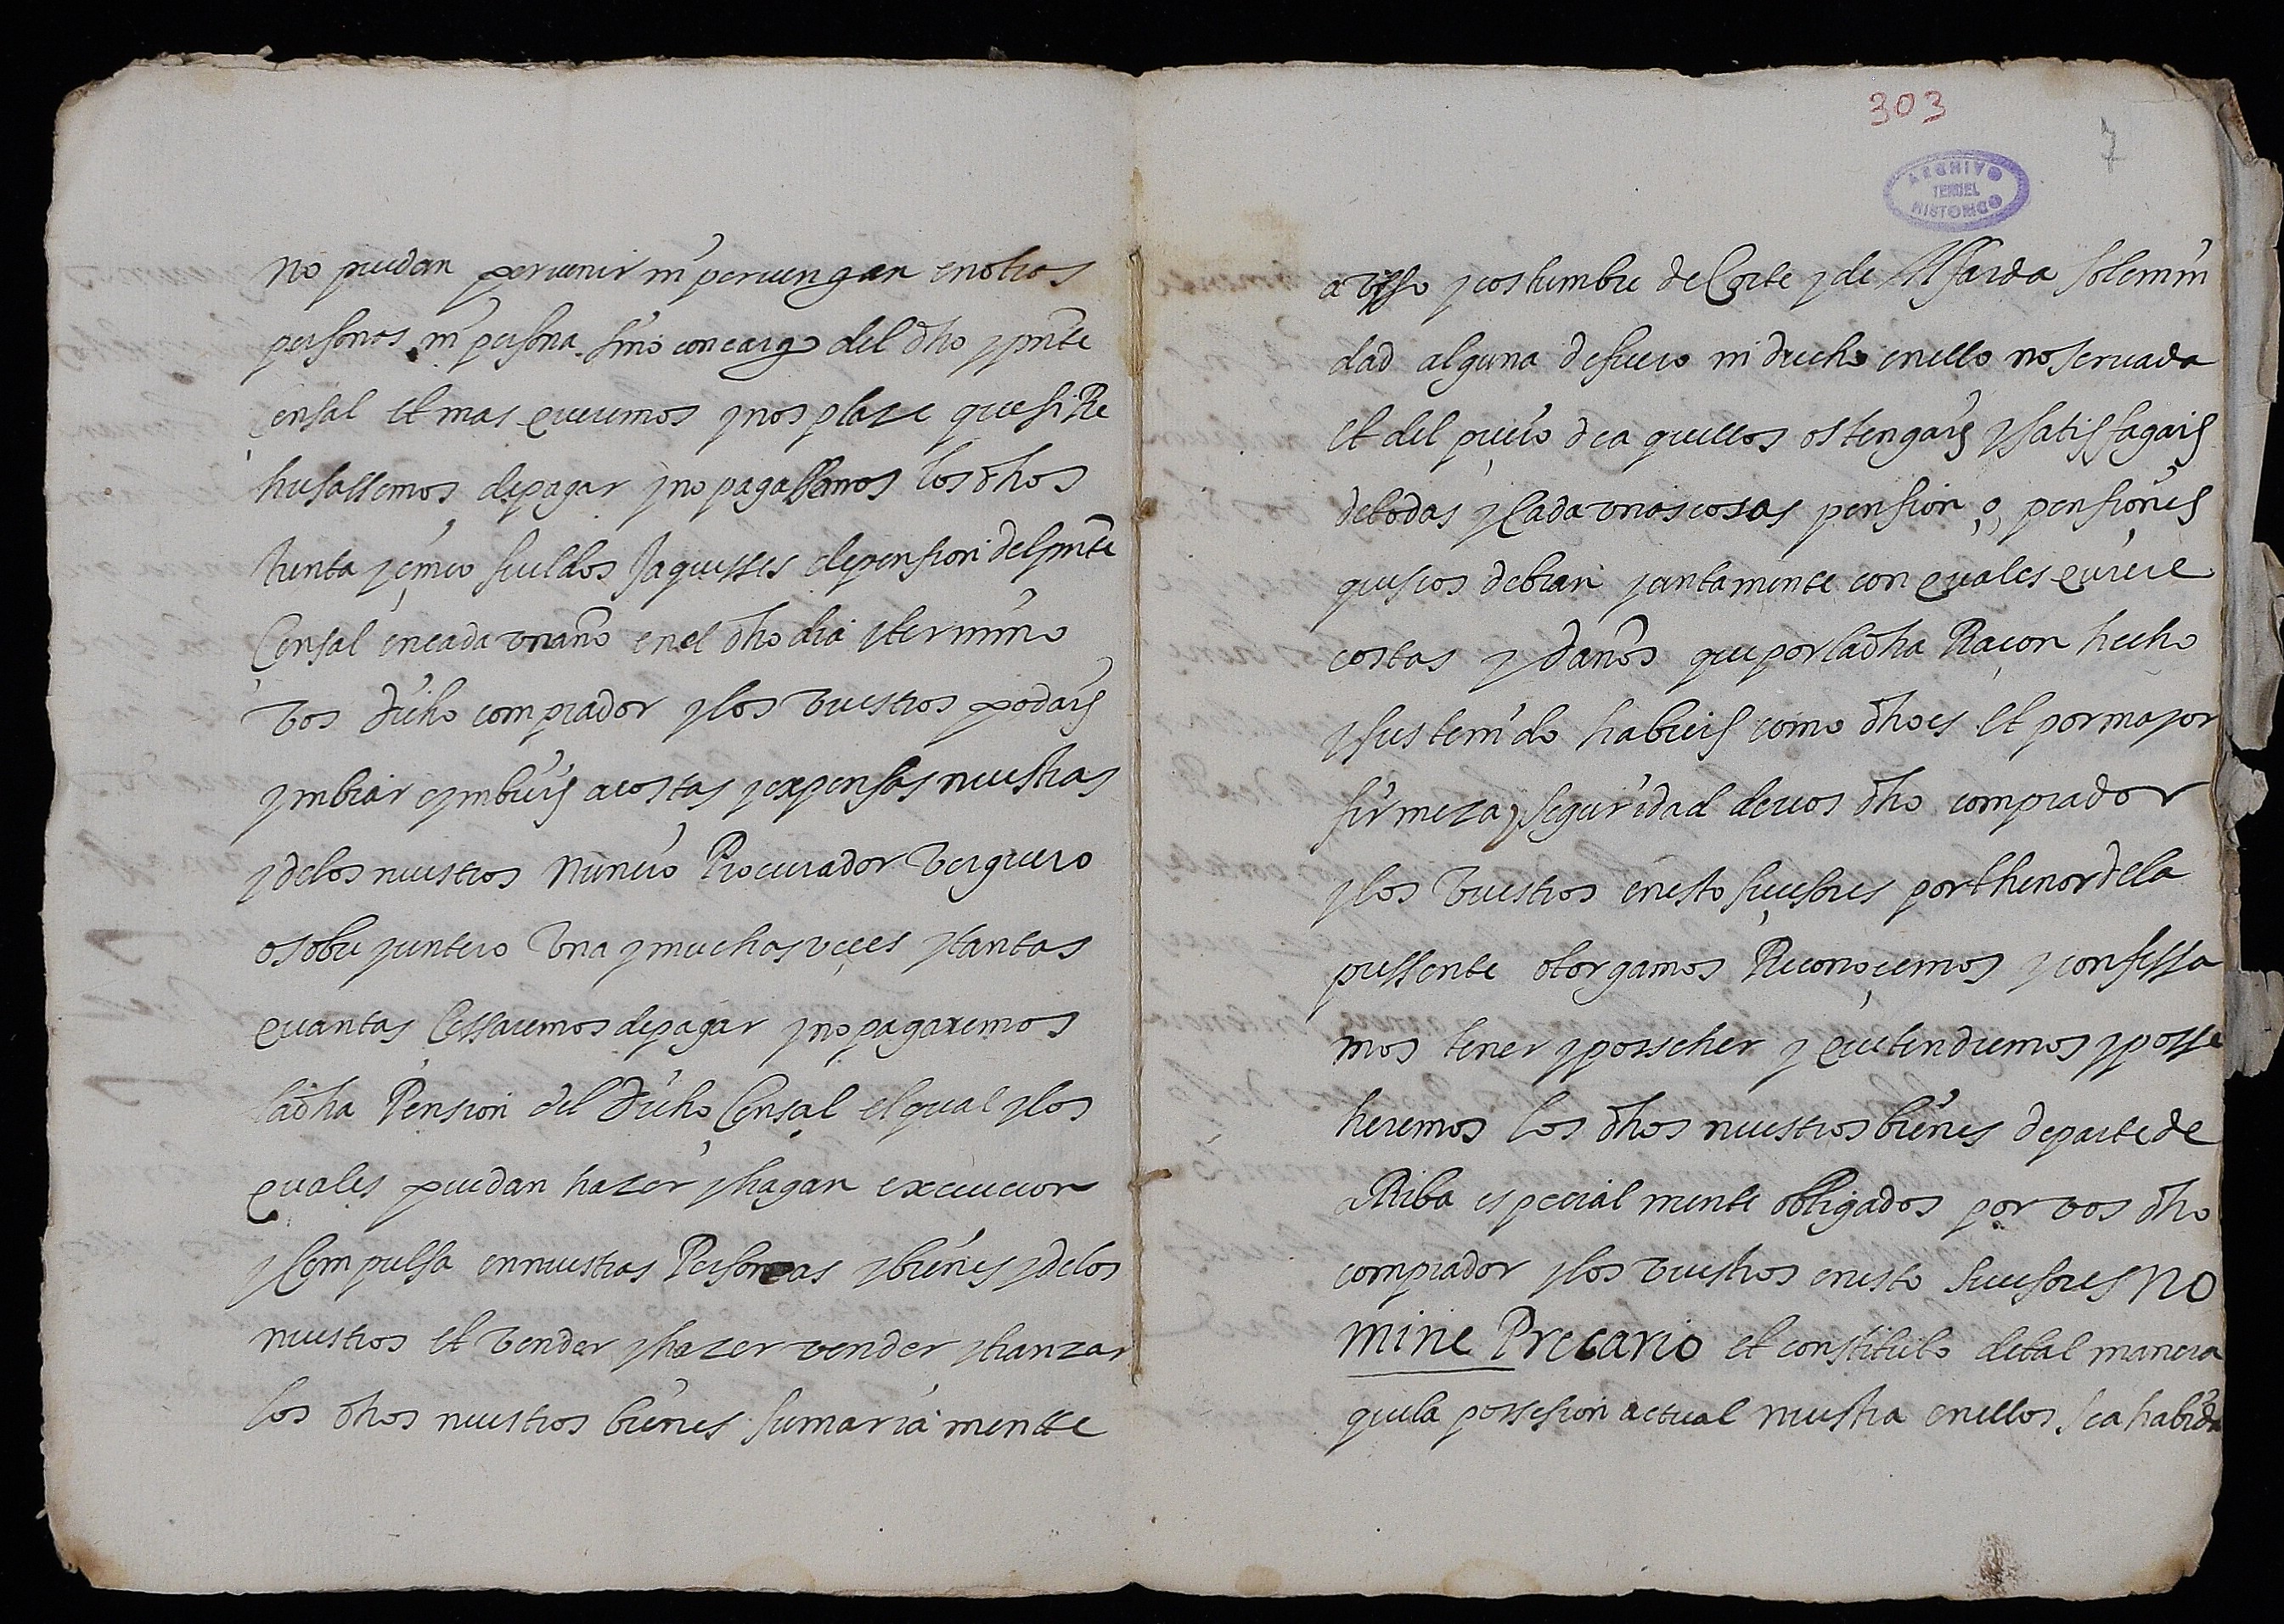 no puedan peruenir ni peruengan en otras
personas ni persona sino con cargo del dho y pnte
çensal et mas queremos y nos plaze que si Re
husassemos de pagar y no pagassemos los dhos
trenta y çinco sueldos Jaquesses de pension del pnte
Çensal en cada un año en el dho dia y termino
vos dicho comprador y los vuestros podais
ymbiar e ymbieis a costas y expensas nuestras
y de los nuestros Nunçio Procurador Verguero
o sobre juntero Una y muchas veçes y tantas
quantas Çessaremos de pagar y no pagaremos
la dha Pension del Dicho Çensal el qual y los
quales puedan hazer y hagan execucion
y Compulsa en nuestras Personas y bienes y de los
nuestros et vender y hazer vender y tranzar
los dhos nuestros bienes sumariamente
303
7
ARCHIVO
TERUEL
HISTORICO
a usso y costumbre de Corte y de Alfarda solemni
dad alguna de fuero ni drecho en ello no seruada
et del preçio de aquellos os tengais y satisfagais
de todas y Cada unas cosas pension o pensiones
que se os debran juntamente con quales quiere
costas y daños que por la dha Raçon hecho
y sustenido habreis como dho es et por mayor
firmeza y seguridad de vos dho comprador
y los Vuestros en esto suçesores por thenor de la
pressente otorgamos Reconoçemos y confessa
mos tener y posseher y que tendremos y posse
heremos los dhos nuestros bienes de parte de
aRiba especialmente obligados por vos dho
comprador y los vuestros en esto sucesores NO
mine Precario et constituto de tal manera
que la possesion actual nuestra en ellos sea habida